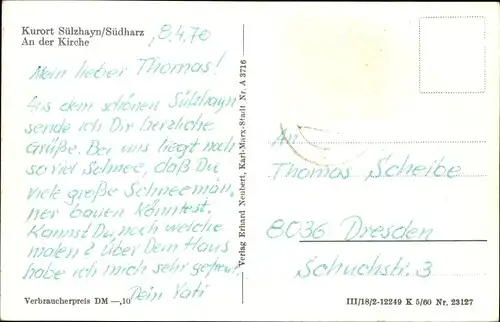 Kurort Sülzhayn/Südharz
An der Kirche
8.4.70
Mein lieber Thomas!
Aus dem schönen Sülzhayn
sende ich Dir herzliche
Grüße. Bei uns liegt noch
so viel Schnee, daß Du
viele große Schneemän-
ner bauen könntest.
Kannst Du noch welche
malen? Über Dein Haus
habe ich mich sehr gefreut.
Dein Vati
Verbraucherpreis DM —,10
Verlag Erhard Neubert, Karl-Marx-Stadt Nr. A 3716
An
Thomas Scheibe
8036 Dresden
Schuchstr. 3
III/18/2-12249 K 5/60 Nr. 23127